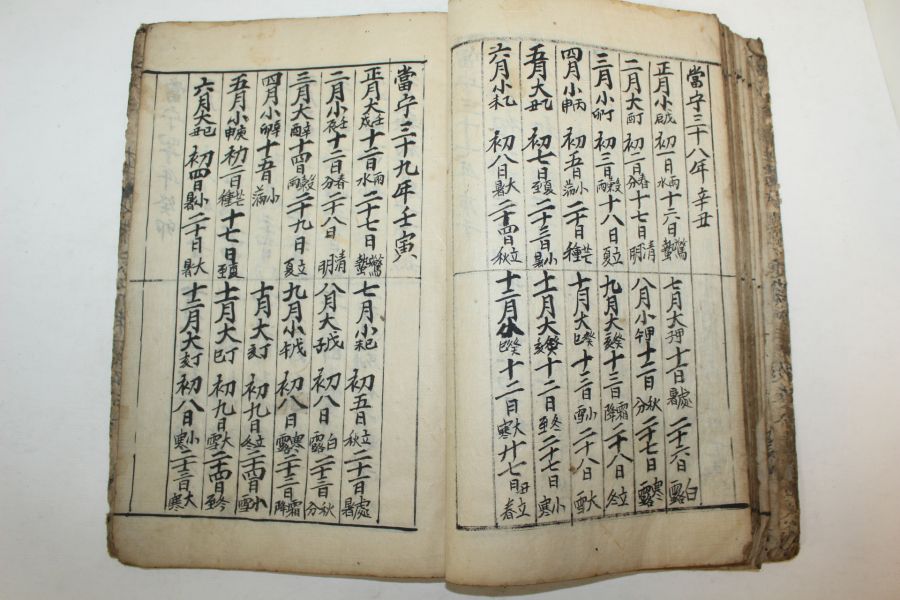 當宁三十八年 辛丑
正月小戊辰 初一日雨水 十六日驚蟄
二月大丁酉 初二日春分 十七日清明
三月小丁卯 初三日穀雨 十八日立夏
四月小丙申 初五日小滿 二十日芒種
五月大乙丑 初七日夏至 二十三日小暑
六月小乙未 初八日大暑 二十四日立秋
七月大甲子 十一日處暑 二十六日白露
八月小甲午 十二日秋分 二十七日寒露
九月大癸亥 十三日霜降 二十八日立冬
十月大癸巳 十三日小雪 二十八日大雪
十一月大癸亥 十二日冬至 二十七日小寒
十二月小癸巳 十二日大寒 廿七日立春
當宁三十九年 壬寅
正月大壬戌 十二日雨水 二十七日驚蟄
二月小壬辰 十二日春分 二十八日清明
三月大辛酉 十四日穀雨 二十九日立夏
四月小辛卯 十五日小滿
五月小庚申 初二日芒種 十七日夏至
六月大己丑 初四日小暑 二十日大暑
七月小己未 初五日立秋 二十一日處暑
八月大戊子 初八日白露 二十三日秋分
九月小戊午 初八日寒露 二十三日霜降
十月大丁亥 初九日立冬 二十四日小雪
十一月大丁巳 初九日大雪 二十四日冬至
十二月大丁亥 初八日小寒 二十三日大寒